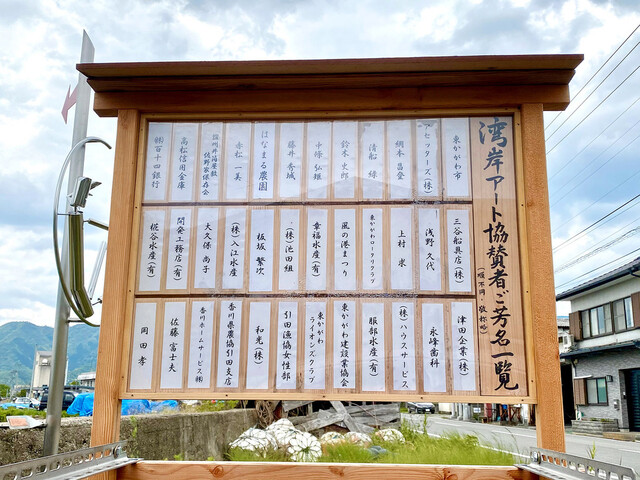 湾岸アート協賛者ご芳名一覧
(順不同・敬称略)
東かがわ市
アセッターズ(株)
網本 昌登
清船 緑
鈴木 史郎
中條 弘雄
藤井 秀城
はなまる農園
赤松 一美
佐野家保存会
高松信用金庫
㈱百十四銀行
三谷船具店(株)
浅野 久代
上村 求
東かがわロータリクラブ
風の港まつり
幸福水産(有)
(株)池田組
板坂 繁次
(株)入江水産
大久保 尚子
開発工務店(有)
糀谷水産(有)
津田企業(株)
永峰歯科
(株)ハウスサービス
服部水産(有)
東かがわ建設業協会
東かがわ
ライオンズクラブ
引田漁協女性部
和光(株)
香川県農協引田支店
香川ホームサービス㈱
佐藤 富士夫
岡田 孝